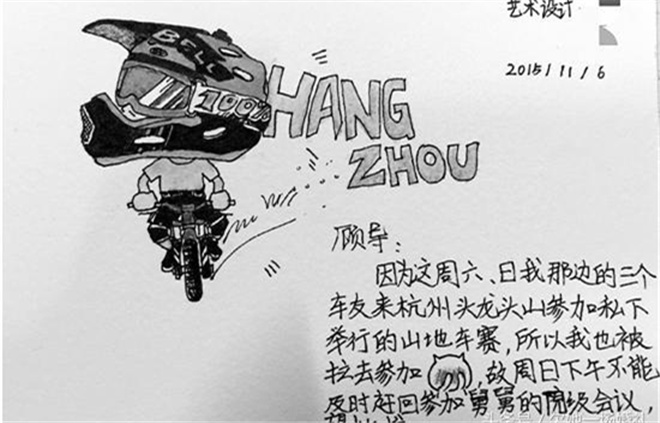 艺术设计
2015/11/6
BELL
100%
HANG
ZHOU
顾导:
因为这周六、日我那边的三个
车友来杭州头龙头山参加私下
举行的山地车赛,所以我也被
拉去参加 ,故周日下午不能
及时赶回参加舅舅的院级会议,